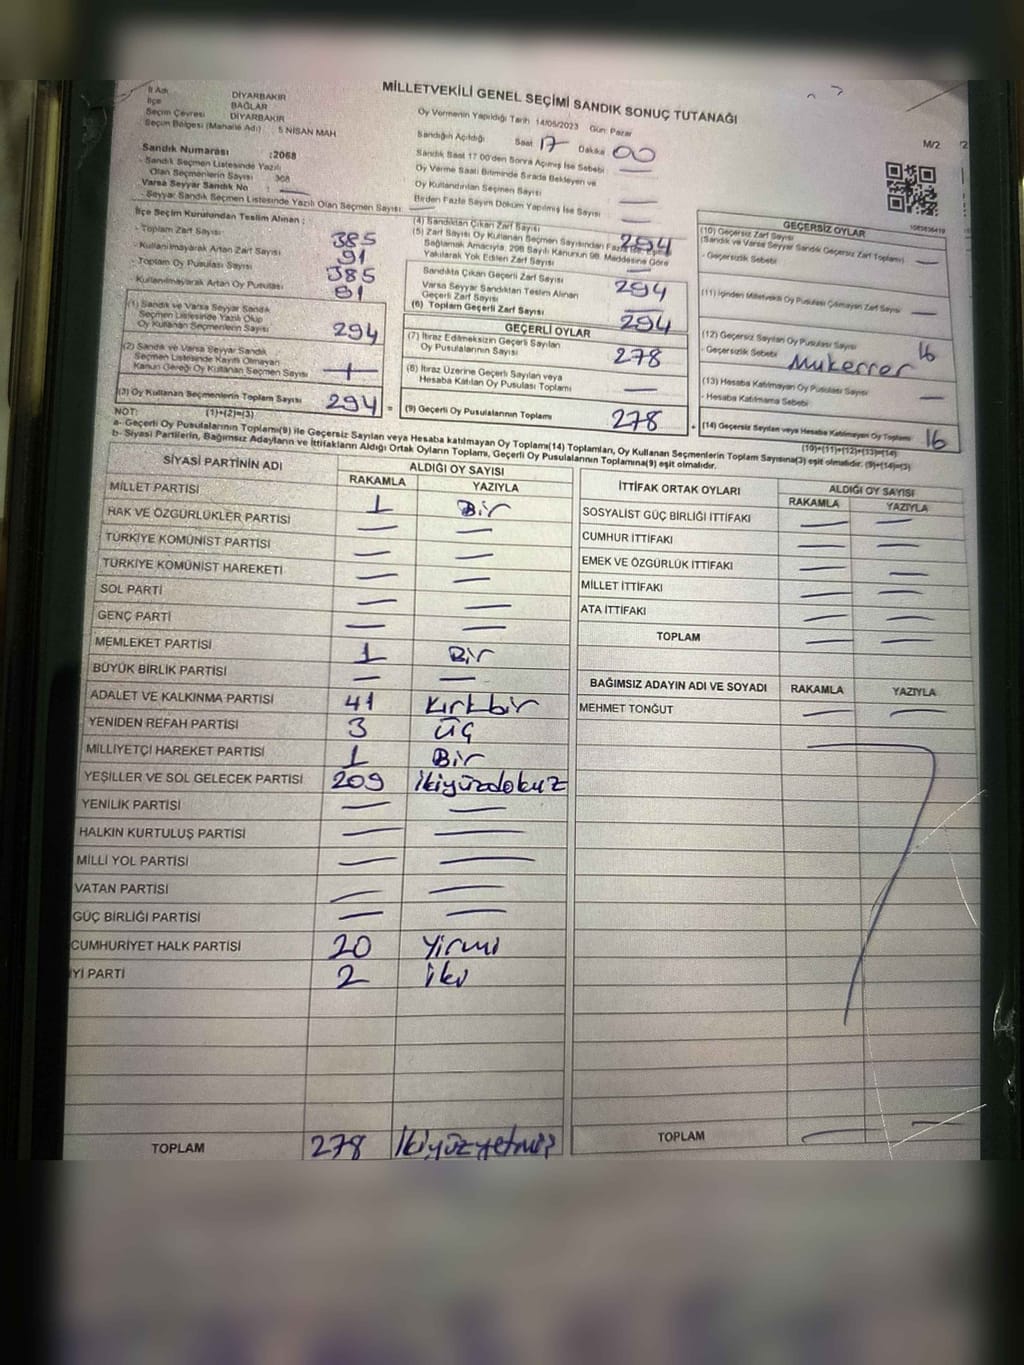 MİLLETVEKİLİ GENEL SEÇİMİ SANDIK SONUÇ TUTANAĞI
M/2
İl Adı DİYARBAKIR
İlçe BAĞLAR
Seçim Çevresi DİYARBAKIR
Seçim Bölgesi (Mahalle Adı) 5 NİSAN MAH
Sandık Numarası :2068
Sandık Seçmen Listesinde Yazılı
Olan Seçmenlerin Sayısı 368
Varsa Seyyar Sandık No : —
Seyyar Sandık Seçmen Listesinde Yazılı Olan Seçmen Sayısı
Oy Vermenin Yapıldığı Tarih 14/05/2023 Gün: Pazar
Sandığın Açıldığı Saat 17 Dakika 00
Sandık Saat 17 00'den Sonra Açılmış İse Sebebi —
Oy Verme Saati Bitiminde Sırada Bekleyen ve
Oy Kullandırılan Seçmen Sayısı —
Birden Fazla Sayım Döküm Yapılmış İse Sayısı —
İlçe Seçim Kurulundan Teslim Alınan :
- Toplam Zarf Sayısı 385
- Kullanılmayarak Artan Zarf Sayısı 91
- Toplam Oy Pusulası Sayısı 385
- Kullanılmayarak Artan Oy Pusulası 91
(1) Sandık ve Varsa Seyyar Sandık
Seçmen Listesinde Yazılı Olup
Oy Kullanan Seçmenlerin Sayısı 294
(2) Sandık ve Varsa Seyyar Sandık
Seçmen Listesinde Kayıtlı Olmayan
Kanun Gereği Oy Kullanan Seçmen Sayısı
(3) Oy Kullanan Seçmenlerin Toplam Sayısı 294 =
(4) Sandıktan Çıkan Zarf Sayısı 294
(5) Zarf Sayısı Oy Kullanan Seçmen Sayısından Fazla İse, Eşitliği
Sağlamak Amacıyla, 298 Sayılı Kanunun 98. Maddesine Göre
Yakılarak Yok Edilen Zarf Sayısı —
Sandıkta Çıkan Geçerli Zarf Sayısı 294
Varsa Seyyar Sandıktan Teslim Alınan
Geçerli Zarf Sayısı —
(6) Toplam Geçerli Zarf Sayısı 294
GEÇERLİ OYLAR
(7) İtiraz Edilmeksizin Geçerli Sayılan
Oy Pusulalarının Sayısı 278
(8) İtiraz Üzerine Geçerli Sayılan veya
Hesaba Katılan Oy Pusulası Toplamı —
(9) Geçerli Oy Pusulalarının Toplamı 278 +
GEÇERSİZ OYLAR
(10) Geçersiz Zarf Sayısı
(Sandık ve Varsa Seyyar Sandık Geçersiz Zarf Toplamı) —
- Geçersizlik Sebebi
(11) İçinden Milletvekili Oy Pusulası Çıkmayan Zarf Sayısı —
(12) Geçersiz Sayılan Oy Pusulası Sayısı 16
- Geçersizlik Sebebi Mükerrer
(13) Hesaba Katılmayan Oy Pusulası Sayısı —
- Hesaba Katılmama Sebebi
(14) Geçersiz Sayılan veya Hesaba Katılmayan Oy Toplamı 16
NOT: (1)+(2)=(3)
(10)+(11)+(12)+(13)=(14)
a- Geçerli Oy Pusulalarının Toplamı(9) ile Geçersiz Sayılan veya Hesaba katılmayan Oy Toplamı(14) Toplamları, Oy Kullanan Seçmenlerin Toplam Sayısına(3) eşit olmalıdır. (9)+(14)=(3)
b- Siyasi Partilerin, Bağımsız Adayların ve İttifakların Aldığı Ortak Oyların Toplamı, Geçerli Oy Pusulalarının Toplamına(9) eşit olmalıdır.
SİYASİ PARTİNİN ADI ALDIĞI OY SAYISI
RAKAMLA YAZIYLA
MİLLET PARTİSİ 1 Bir
HAK VE ÖZGÜRLÜKLER PARTİSİ — —
TÜRKİYE KOMÜNİST PARTİSİ — —
TÜRKİYE KOMÜNİST HAREKETİ — —
SOL PARTİ — —
GENÇ PARTİ — —
MEMLEKET PARTİSİ 1 Bir
BÜYÜK BİRLİK PARTİSİ — —
ADALET VE KALKINMA PARTİSİ 41 Kırkbir
YENİDEN REFAH PARTİSİ 3 ÜÇ
MİLLİYETÇİ HAREKET PARTİSİ 1 Bir
YEŞİLLER VE SOL GELECEK PARTİSİ 209 İkiyüzdokuz
YENİLİK PARTİSİ — —
HALKIN KURTULUŞ PARTİSİ — —
MİLLİ YOL PARTİSİ — —
VATAN PARTİSİ — —
GÜÇ BİRLİĞİ PARTİSİ — —
CUMHURİYET HALK PARTİSİ 20 Yirmi
İYİ PARTİ 2 İki
TOPLAM 278
İTTİFAK ORTAK OYLARI ALDIĞI OY SAYISI
RAKAMLA YAZIYLA
SOSYALİST GÜÇ BİRLİĞİ İTTİFAKI — —
CUMHUR İTTİFAKI — —
EMEK VE ÖZGÜRLÜK İTTİFAKI — —
MİLLET İTTİFAKI — —
ATA İTTİFAKI — —
TOPLAM — —
BAĞIMSIZ ADAYIN ADI VE SOYADI RAKAMLA YAZIYLA
MEHMET TONĞUT — —
TOPLAM — —